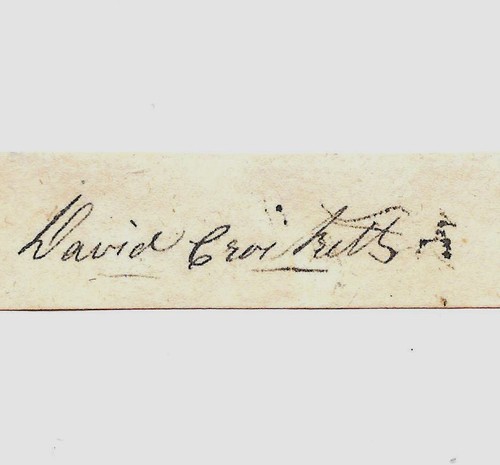 David Crockett